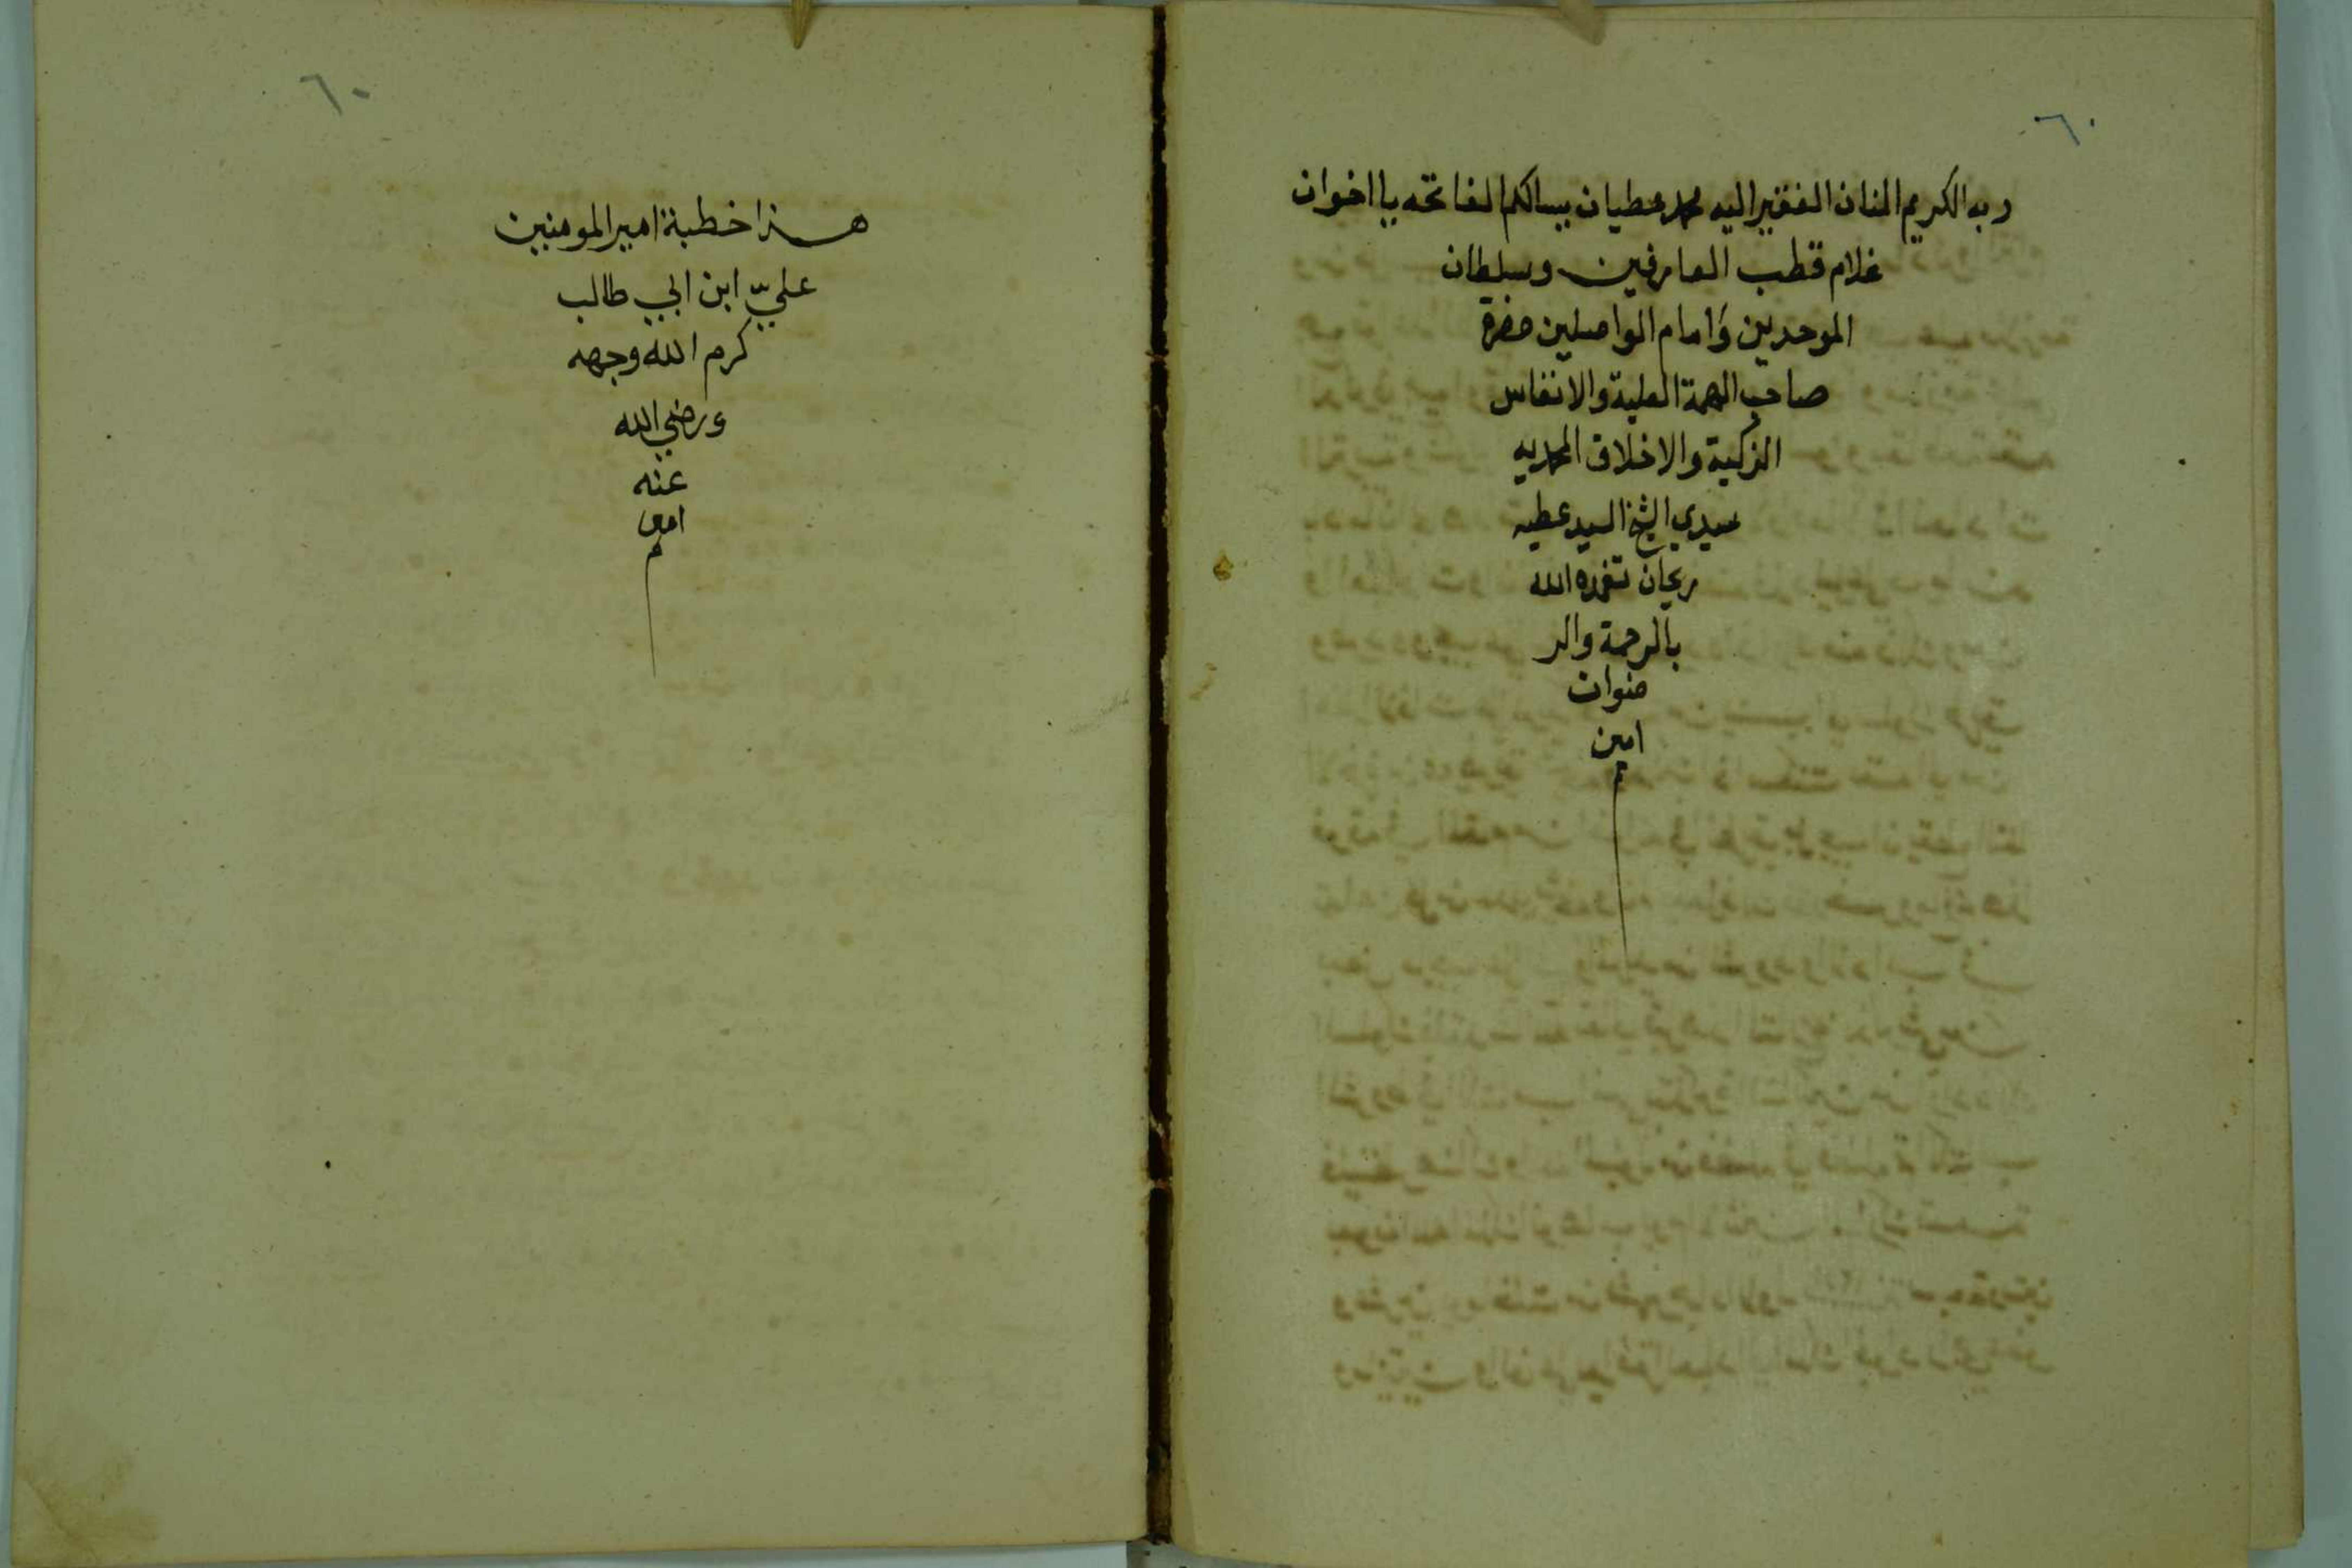 ٦٠
ربه الكريم المنان الفقير اليه محمد عطيان يسالكم الفاتحه يا اخوان
غلام قطب العارفين وسلطان
الموحدين وامام الواصلين حضرة
صاحب الهمة العلية والانفاس
الزكية والاخلاق المحمديه
سيدي الشيخ السيد عطيه
ريحان تغمده الله
بالرحمة والر
ضوان
امين
م
٦٠
هذا خطبة امير المومنين
عليّ ابن ابي طالب
كرم الله وجهه
ورضي الله
عنه
امين
م